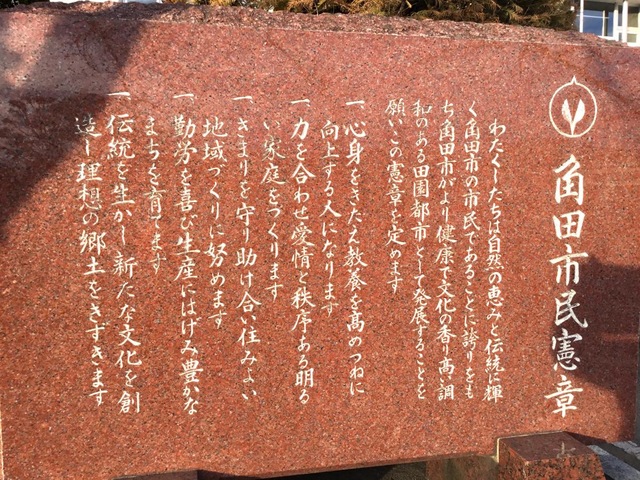 角田市民憲章
わたくしたちは自然の恵みと伝統に輝
く角田市の市民であることに誇りをも
ち角田市がより健康で文化の香り高い調
和のある田園都市として発展することを
願いこの憲章を定めます
一 心身をきたえ教養を高めつねに
向上する人になります
一 力を合わせ愛情と秩序ある明る
い家庭をつくります
一 きまりを守り助け合い住みよい
地域づくりに努めます
一 勤労を喜び生産にはげみ豊かな
まちを育てます
一 伝統を生かし新たな文化を創
造し理想の郷土をきずきます